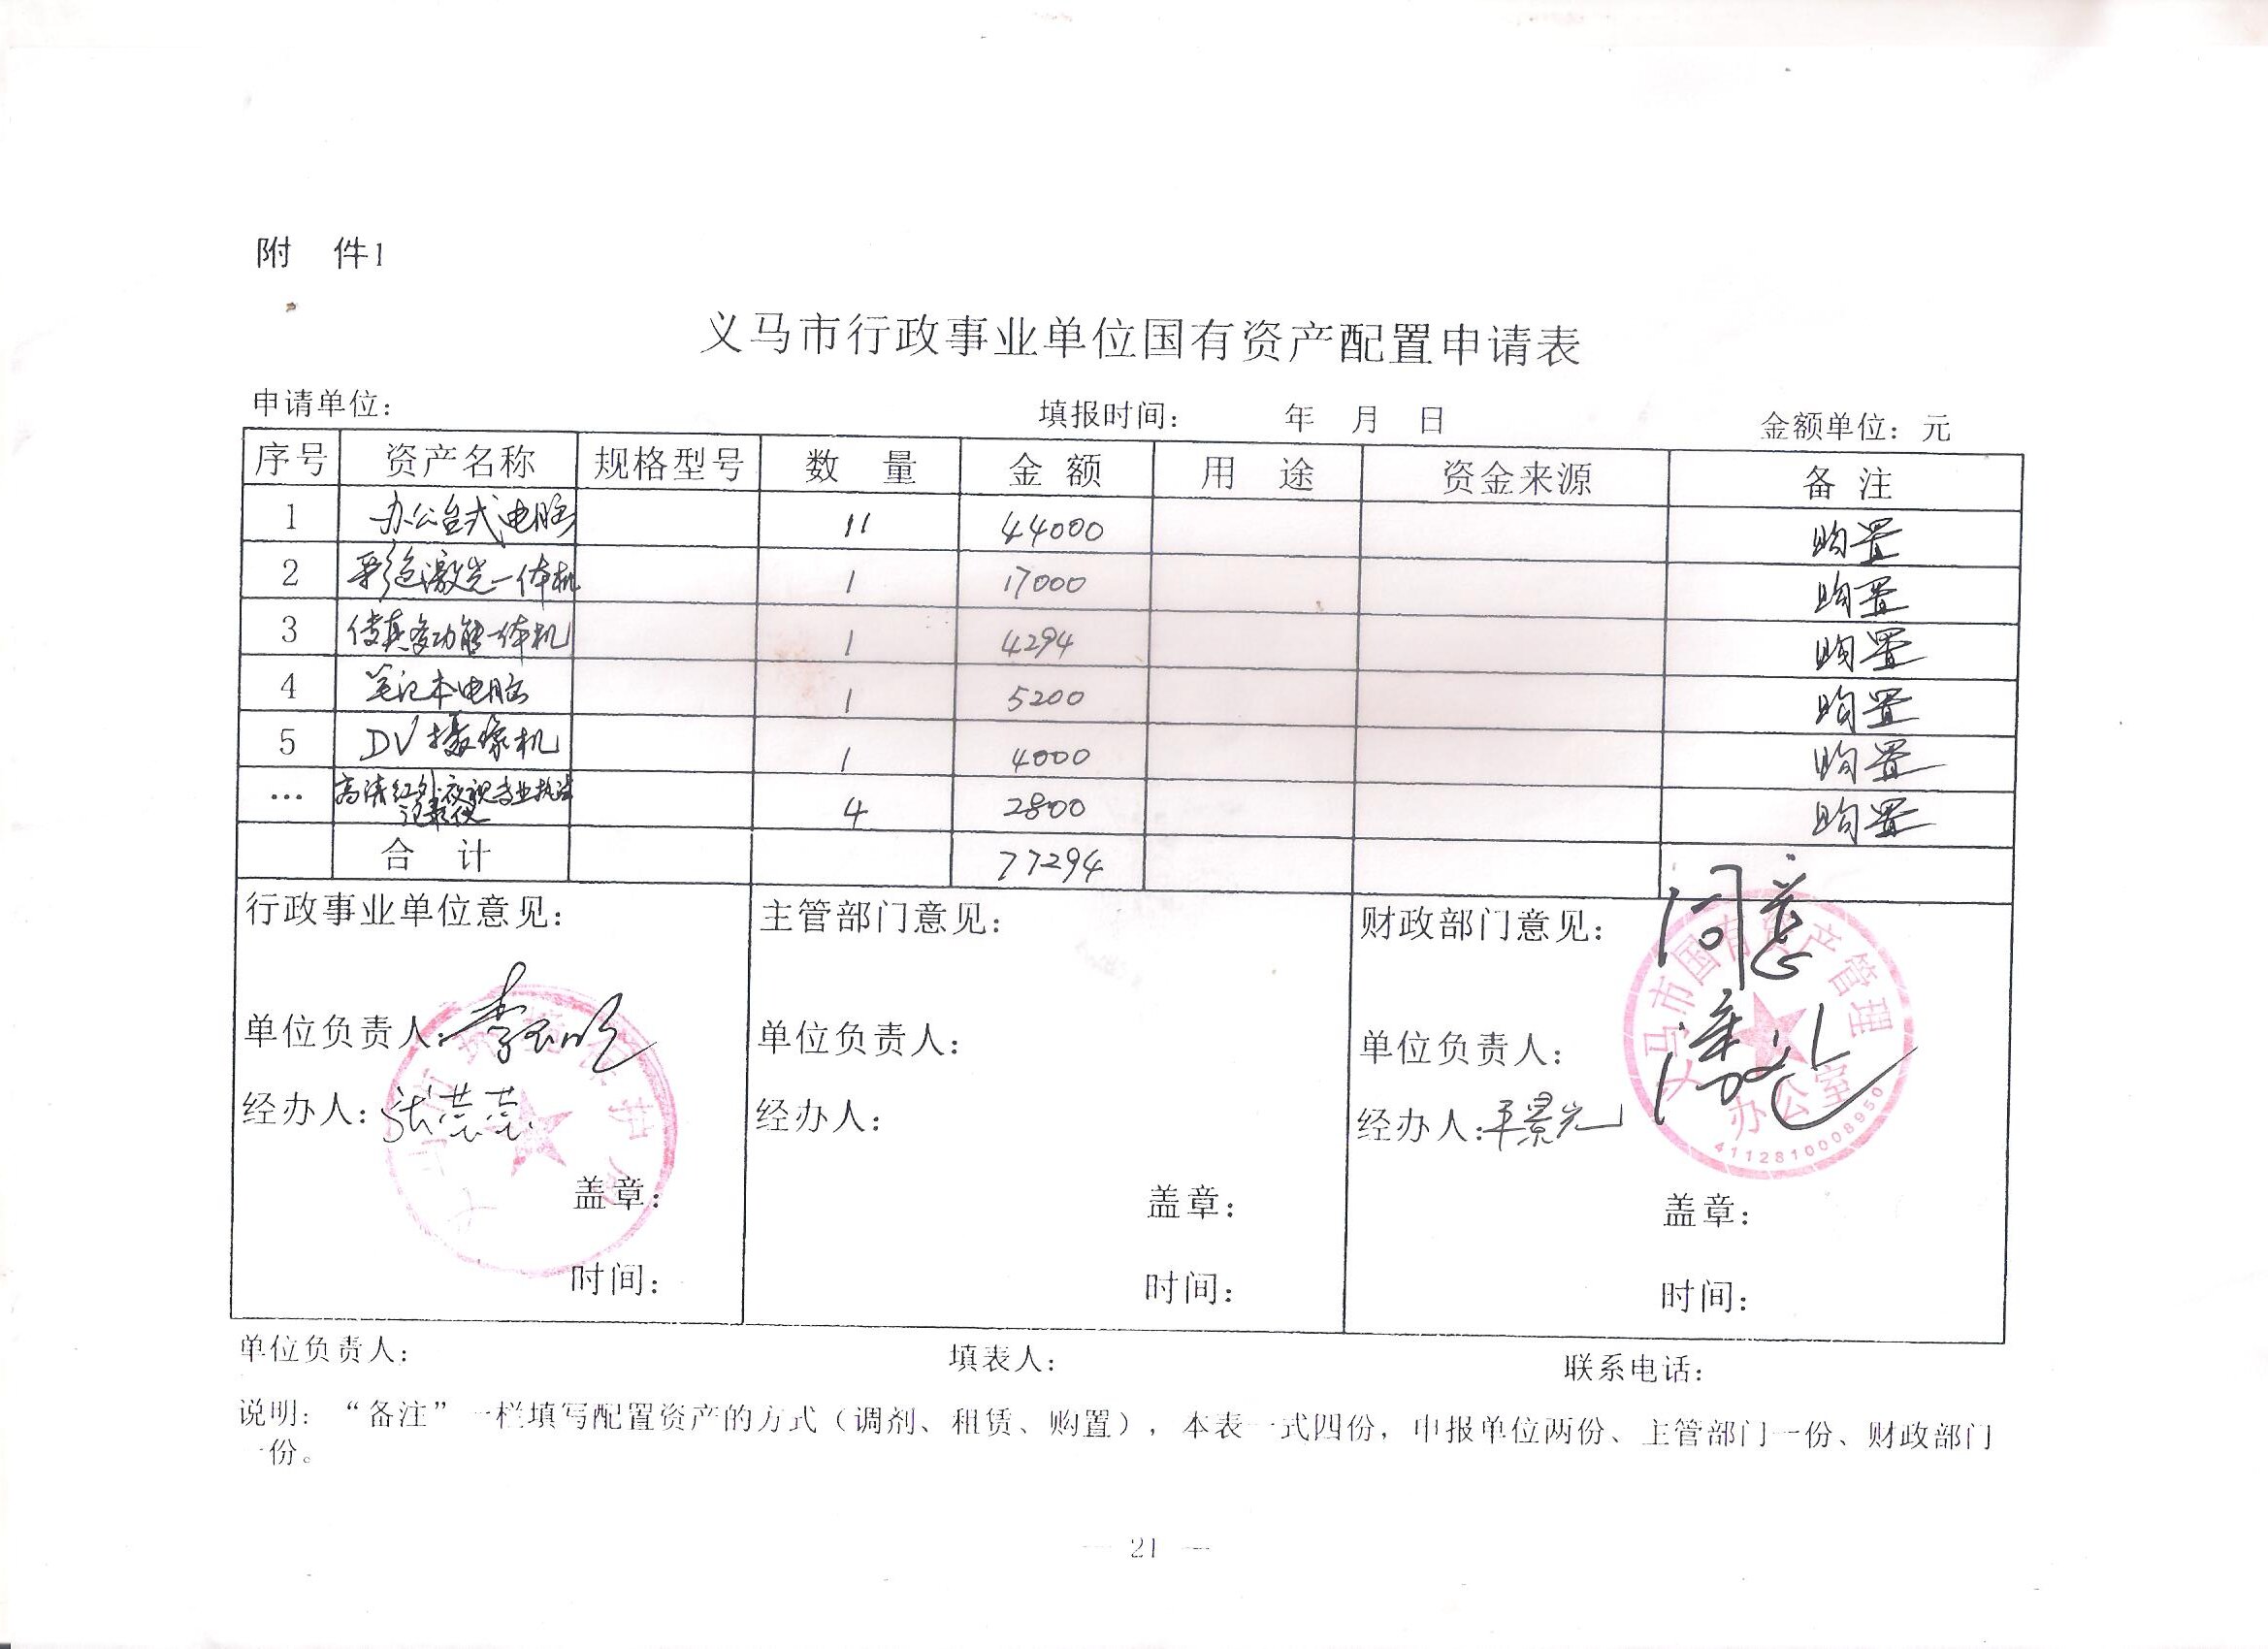 附 件1
义马市行政事业单位国有资产配置申请表
申请单位： 填报时间： 年 月 日 金额单位：元
序号 资产名称 规格型号 数 量 金 额 用 途 资金来源 备 注
1 办公台式电脑 11 44000 购置
2 彩色激光一体机 1 17000 购置
3 传真多功能一体机 1 4294 购置
4 笔记本电脑 1 5200 购置
5 DV摄像机 1 4000 购置
… 高清红外夜视专业执法 4 2800 购置
记录仪
合 计 77294
行政事业单位意见： 主管部门意见： 财政部门意见： 同意
单位负责人： 单位负责人： 单位负责人：
经办人： 经办人： 经办人：平景光
盖章： 盖章： 盖章：
时间： 时间： 时间：
环境保护局
义马市国有资产管理
办公室
4112810008950
单位负责人： 填表人： 联系电话：
说明：“备注”一栏填写配置资产的方式（调剂、租赁、购置），本表一式四份，申报单位两份、主管部门一份、财政部门
一份。
— 21 —